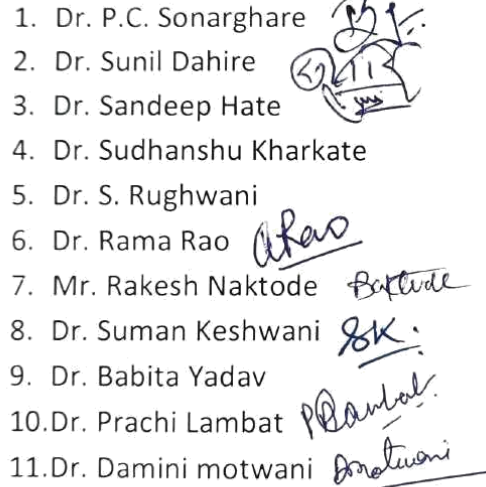 1. Dr. P.C. Sonarghare
2. Dr. Sunil Dahire
3. Dr. Sandeep Hate
4. Dr. Sudhanshu Kharkate
5. Dr. S. Rughwani
6. Dr. Rama Rao Rao
7. Mr. Rakesh Naktode
8. Dr. Suman Keshwani SK.
9. Dr. Babita Yadav
10.Dr. Prachi Lambat PLambat
11.Dr. Damini motwani Dmotwani